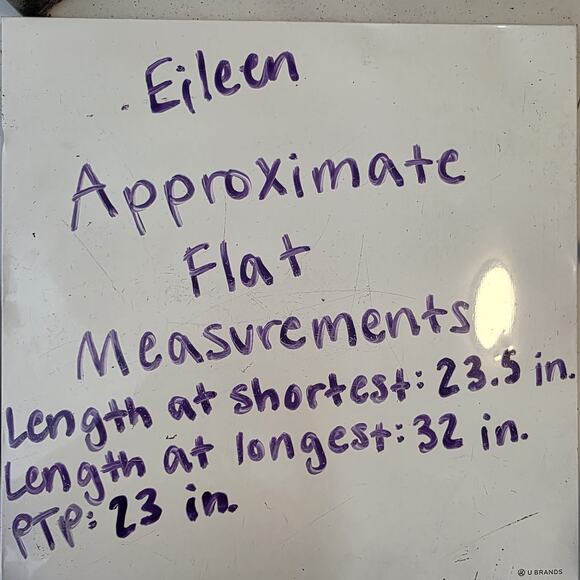 Eileen
Approximate
Flat
Measurements
Length at shortest: 23.5 in.
Length at longest: 32 in.
PTP: 23 in.
U BRANDS